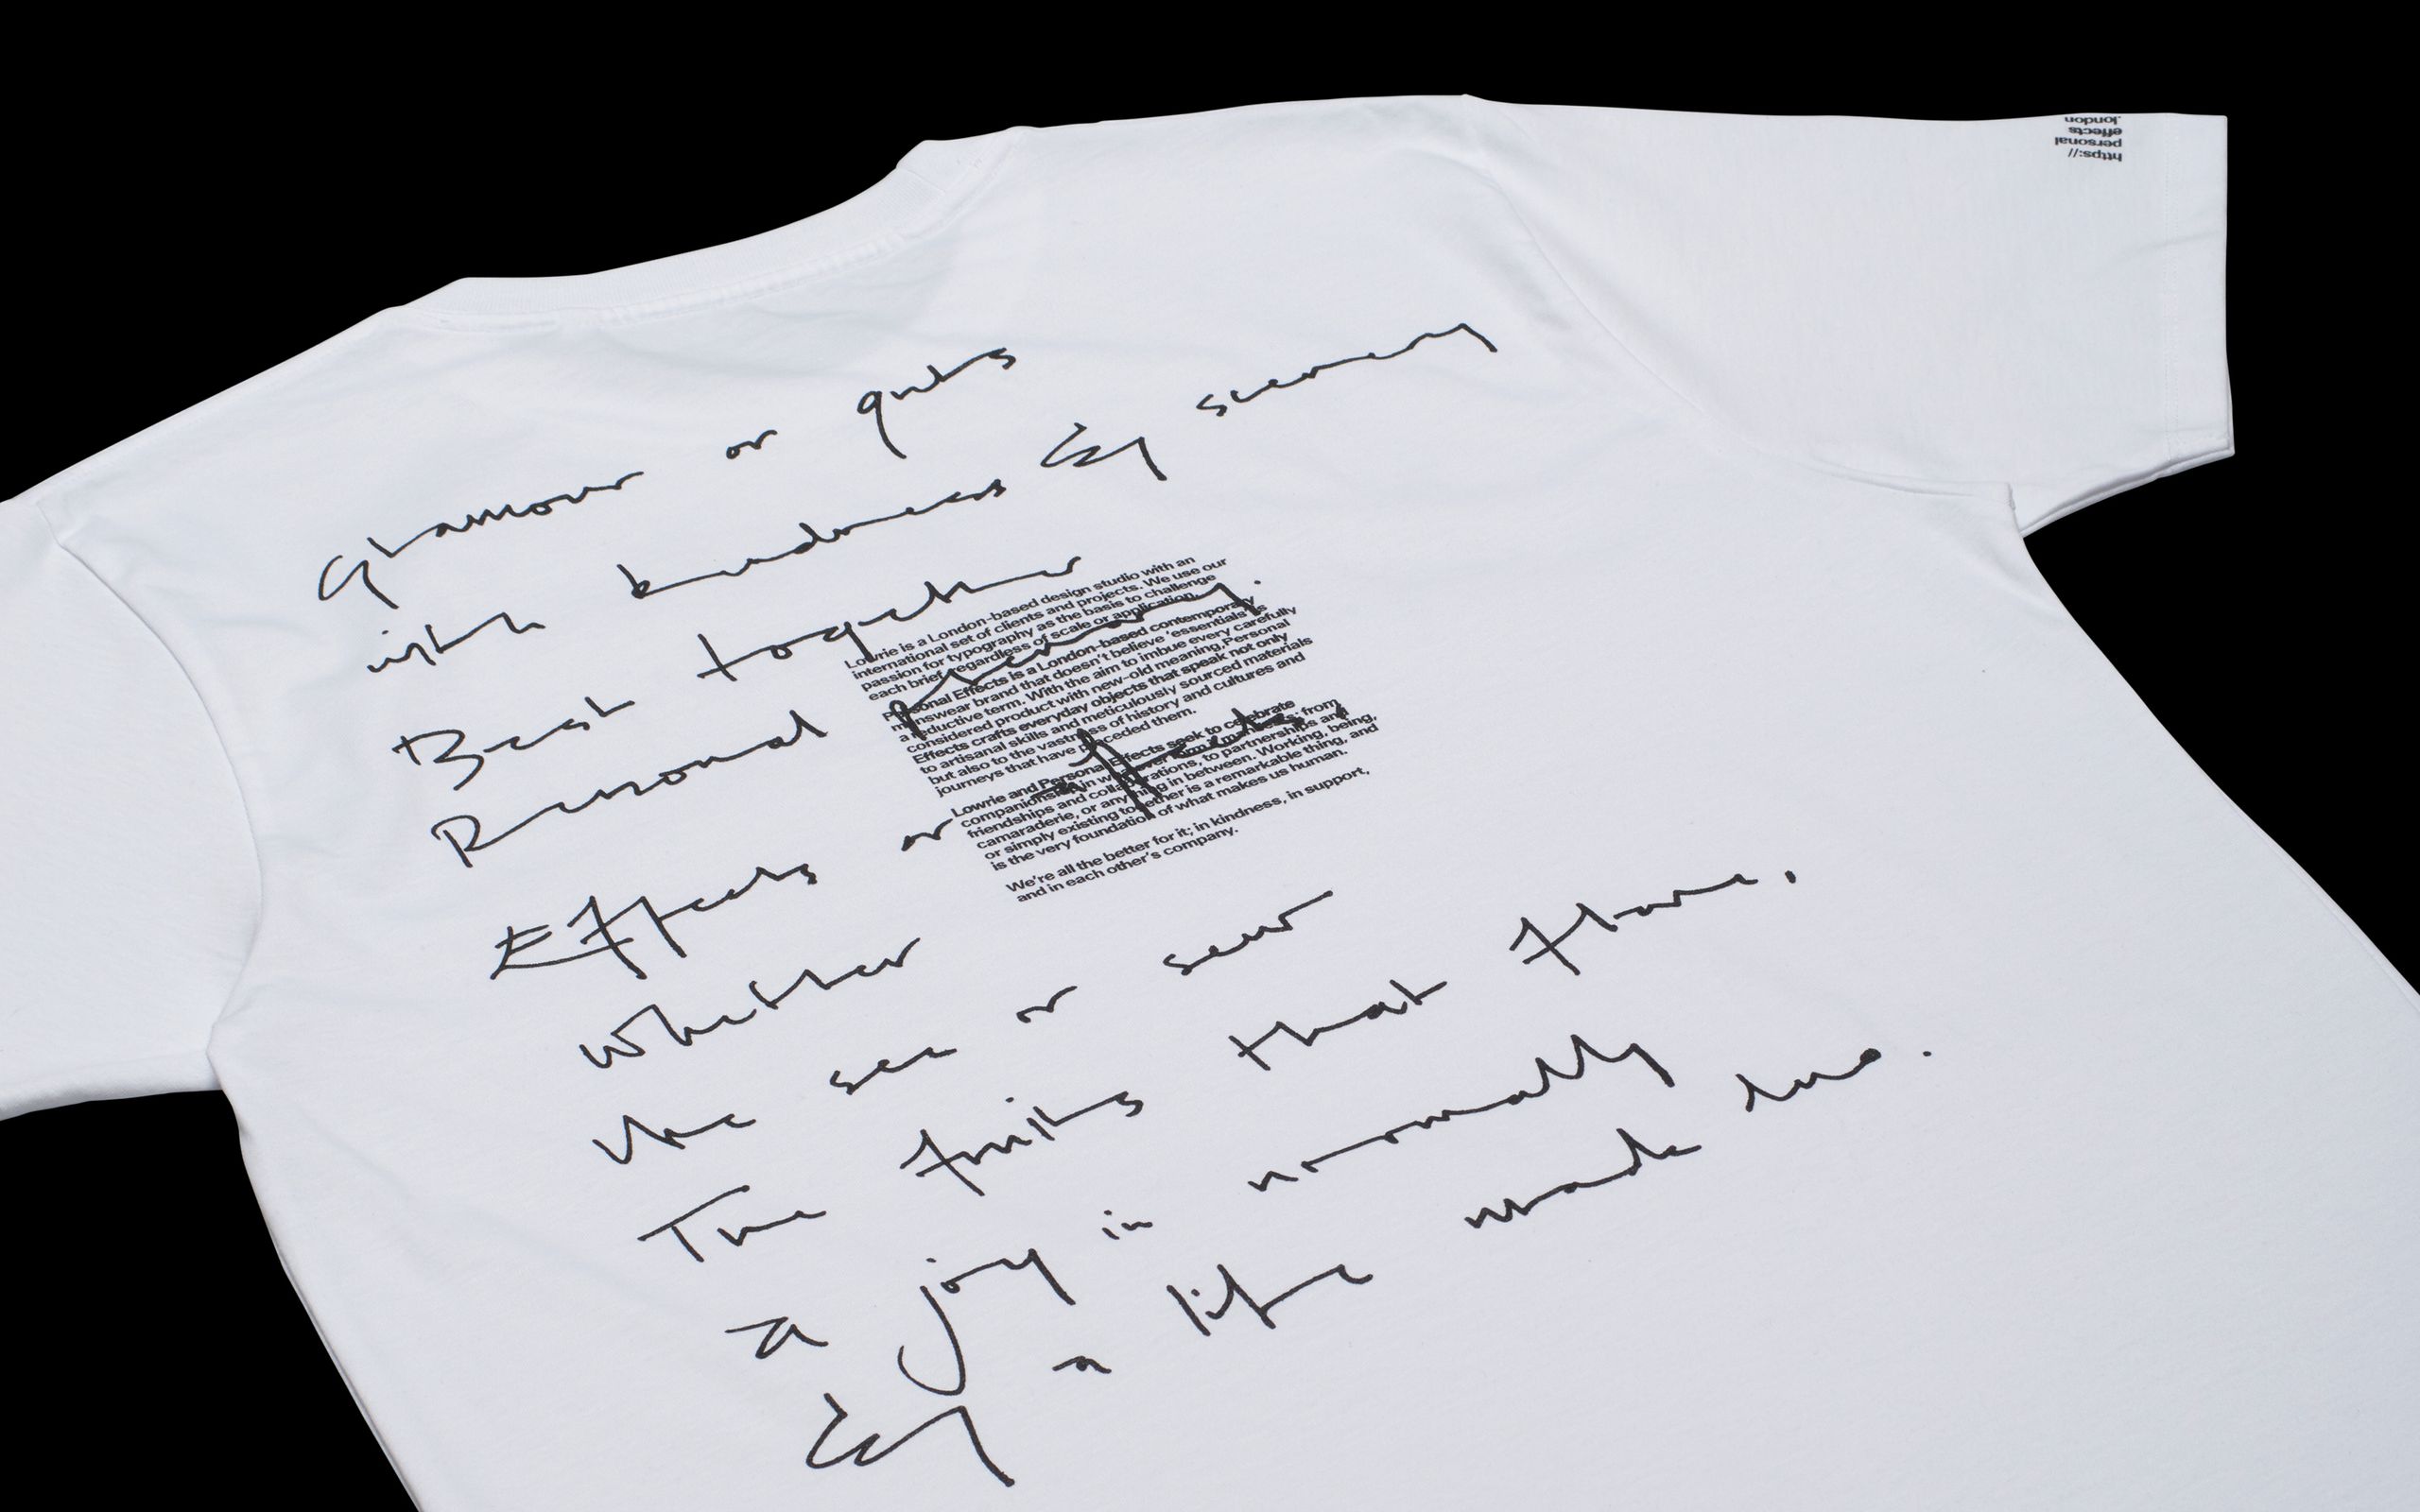 https://
personal
effects
.london
Glamour or guts
with kindness by
Best together
Personal
Effects or
Whether
see or sew
The fruits that
a joy in normally
by a life made
Lowrie is a London-based design studio with an
international set of clients and projects. We use our
passion for typography as the basis to challenge
each brief, regardless of scale or application.
Personal Effects is a London-based contemporary
menswear brand that doesn't believe 'essentials' is
a reductive term. With the aim to imbue every carefully
considered product with new-old meaning, Personal
Effects crafts everyday objects that speak not only
to artisanal skills and meticulously sourced materials
but also to the vastness of history and cultures and
journeys that have preceded them.
Lowrie and Personal Effects seek to celebrate
companionship in whatever form it manifests: from
friendships and collaborations, to partnerships and
camaraderie, or anything in between. Working, being,
or simply existing together is a remarkable thing, and
is the very foundation of what makes us human.
We're all the better for it; in kindness, in support,
and in each other's company.